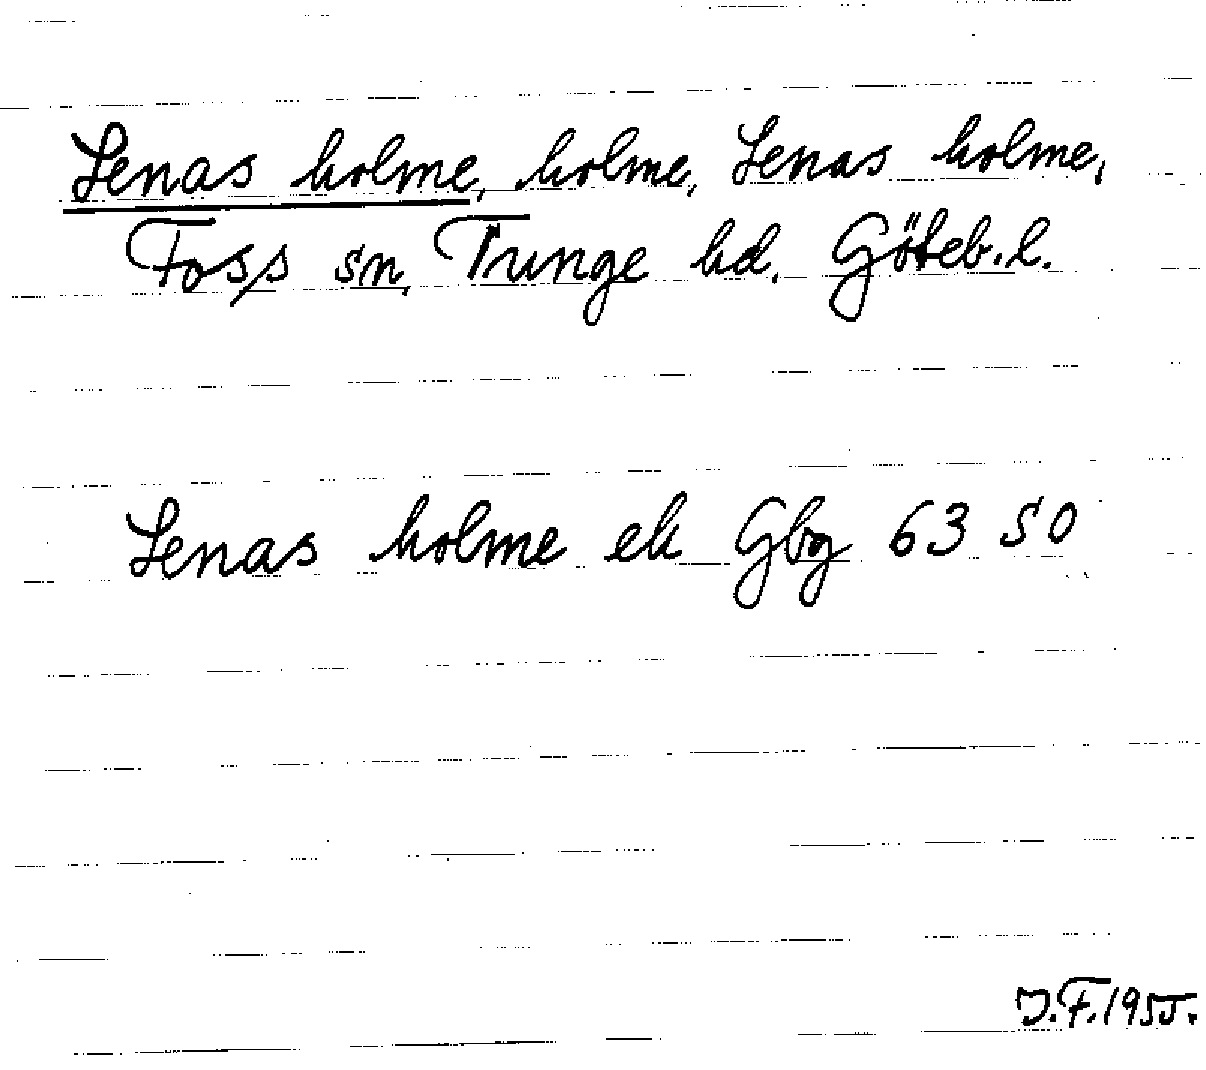 Lenas holme, holme, Lenas holme,
Foss sn, Tunge hd. Göteb.l.
Lenas holme ek Gbg 63 SO
J.F.1955.